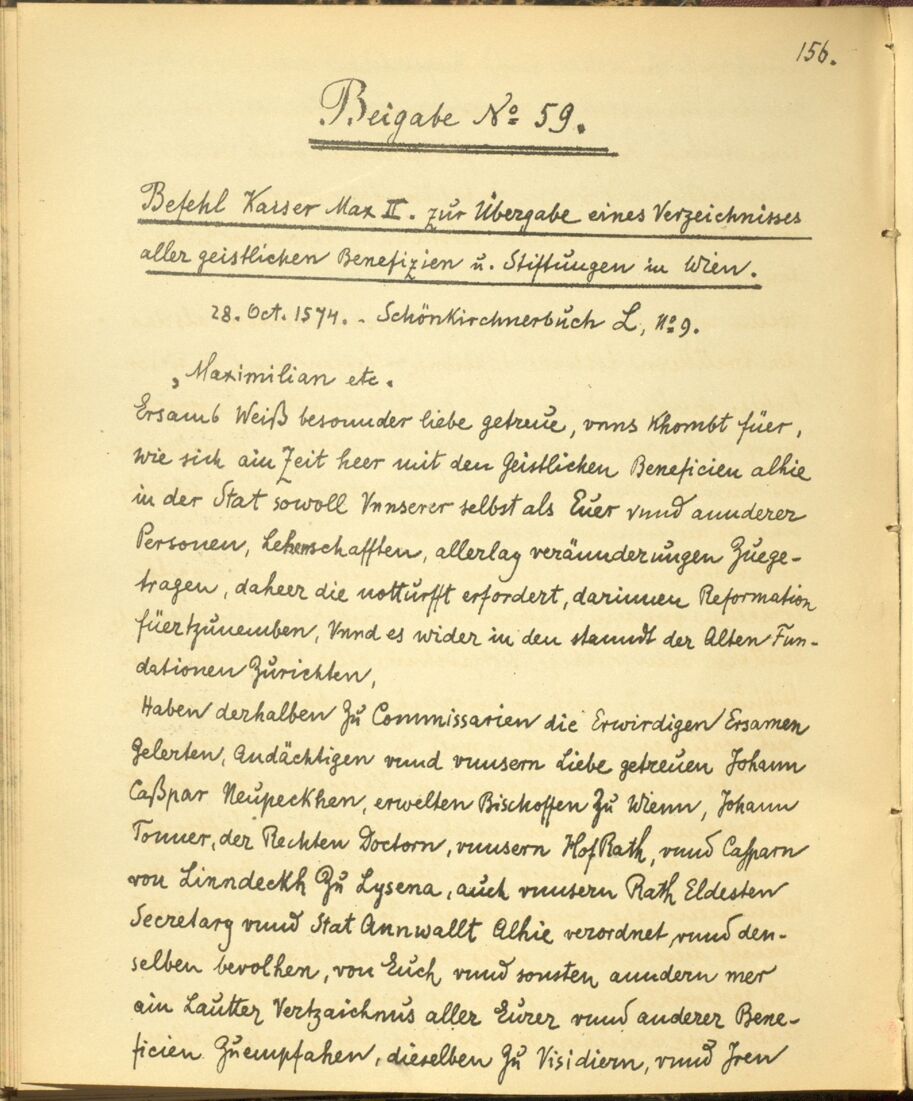 156.
Beigabe No 59.
Befehl Kaiser Max II. zur Übergabe eines Verzeichnisses
aller geistlichen Benefizien u. Stiftungen in Wien.
28. Oct. 1574. - Schönkirchnerbuch L, No 9.
„Maximilian etc.
Ersamb Weiß besonnder liebe getreue, vnns Khombt füer,
wie sich ain Zeit heer mit den Geistlichen Beneficien alhie
in der Stat sowoll Vnnserer selbst als Euer vnnd annderer
Personen, Lehenschafften, allerlay veränderungen Zuege-
tragen, daheer die notturfft erfordert, darinnen Reformation
füertzunemben, Vnnd es wider in den stanndt der Alten Fun-
dationen Zurichten,
Haben derhalben Zu Commissarien die Erwirdigen Ersamen
Gelerten, Andächtigen vnnd vnnsern Liebe getreuen Johann
Caßpar Neupeckhen, erwelten Bischoffen Zu Wienn, Johann
Tonner, der Rechten Doctorn, vnnsern HofRath, vnnd Casparn
von Linndeckh Zu Lysena, auch vnnsern Rath Eldesten
Secretary vnnd Stat Annwallt Alhie verordnet, vnnd den-
selben bevolhen, von Euch vnnd sonsten anndern mer
ain Lautter Vertzaichnus aller Eurer vnnd anderer Bene-
ficien Zuempfahen, dieselben Zu Visidiern, vnnd Iren